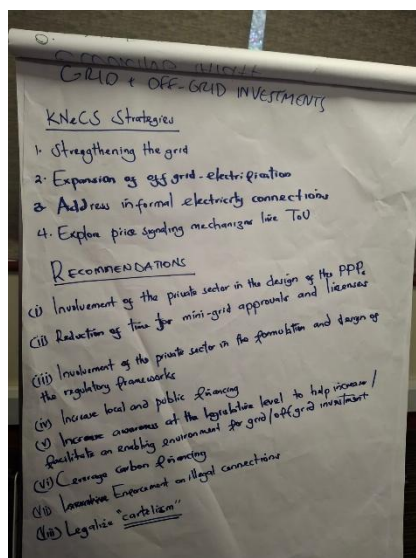 GRID & OFF-GRID INVESTMENTS
KNeCS Strategies
1. Streggthening the grid
2. Expansion of off grid-electrification
3 Address informal electricity connections
4. Explore price signaling mechanizms like ToU
RECOMMENDATIONS
(i) Involvement of the private sector in the design of the PPPs
(ii) Reduction of time for mini-grid approvals and licenses
(iii) Involvement of the private sector in the formulation and design of
the regulatory frameworks
(iv) Increase local and public financing
(v) Increase awareness at the legislative level to help increase/
facilitate an enabling environment for grid/off grid investment
(vi) Leverage carbon financing
(vii) Enforcement on illegal connections
(viii) Legalise "cartelism"